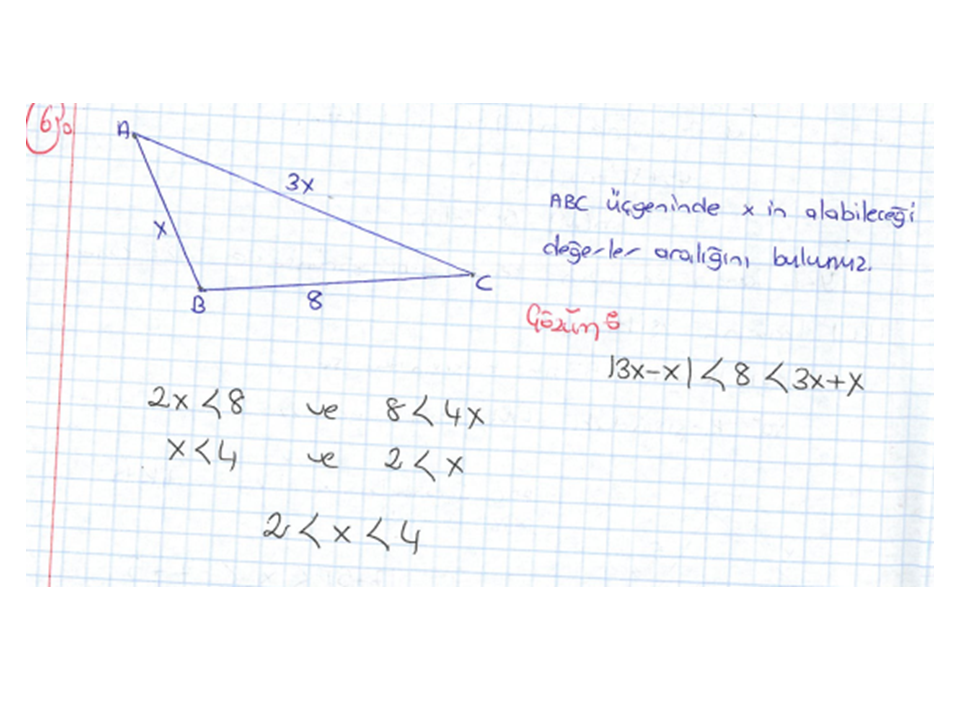 6)
A
3x
x
B
8
C
ABC üçgeninde x in alabileceği
değerler aralığını bulunuz.
Çözüm:
|3x-x| < 8 < 3x+x
2x < 8 ve 8 < 4x
x < 4 ve 2 < x
2 < x < 4